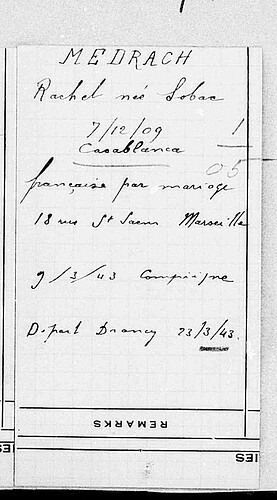 MEDRACH
Rachel née Sobac
7/12/09 1
Casablanca
05
française par mariage
18 rue St Saens Marseille
9/3/43 Compiègne
Départ Drancy 23/3/43.
REMARKS
IES
IES